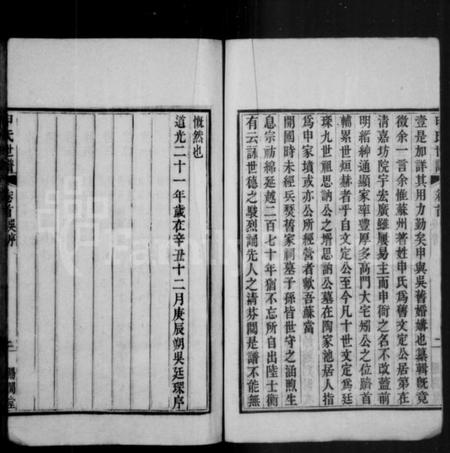 壹是加詳其用力勤矣申與吳舊婚媾也纂輯既竟
徵余一言余惟蘇州著姓申氏為舊文定公居第在
清嘉坊院宇宏廣雖屢易主而申衙之名不改蓋前
明縉紳通顯家率豐厚多高門大宅矧公之位躋首
輔累世烜赫者乎自文定公至今凡十世文定為廷
琛九世祖思訥公之壻思訥公墓在陶家池居人指
為申家墳或亦公所經營者歟吾蘇當
開國時未經兵燹舊家祠墓子孫皆世守之涵煦生
息宗祊綿延越二百七十年猶不忘所自出陸士衡
有云詠世德之駿烈誦先人之清芬閱是譜不能無
慨然也
道光二十一年歲在辛丑十二月庚辰朔吳廷琛序
申氏世譜 卷首
二
賜閒堂